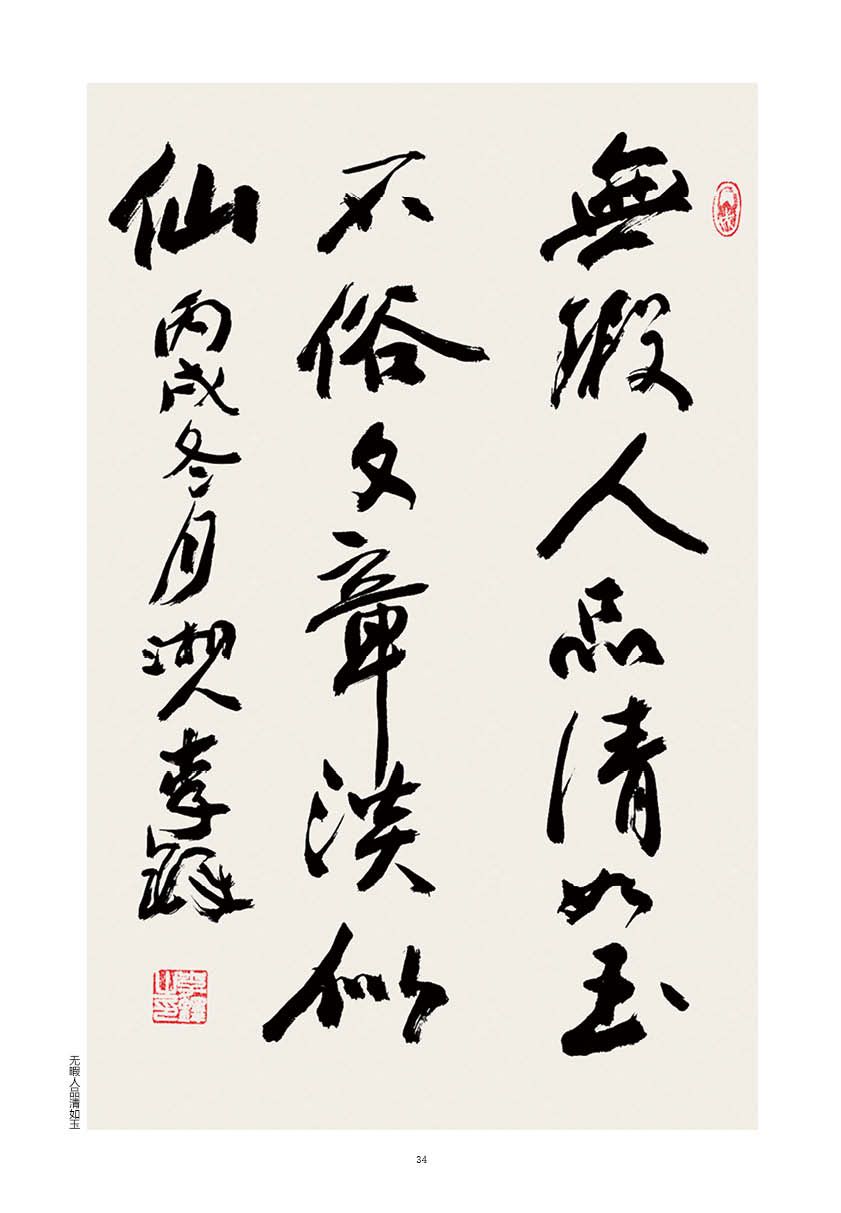 無瑕人品清如玉
不俗文章淡似
仙
丙戌冬月湘人李鐸
李鐸之印
无暇人品清如玉
34